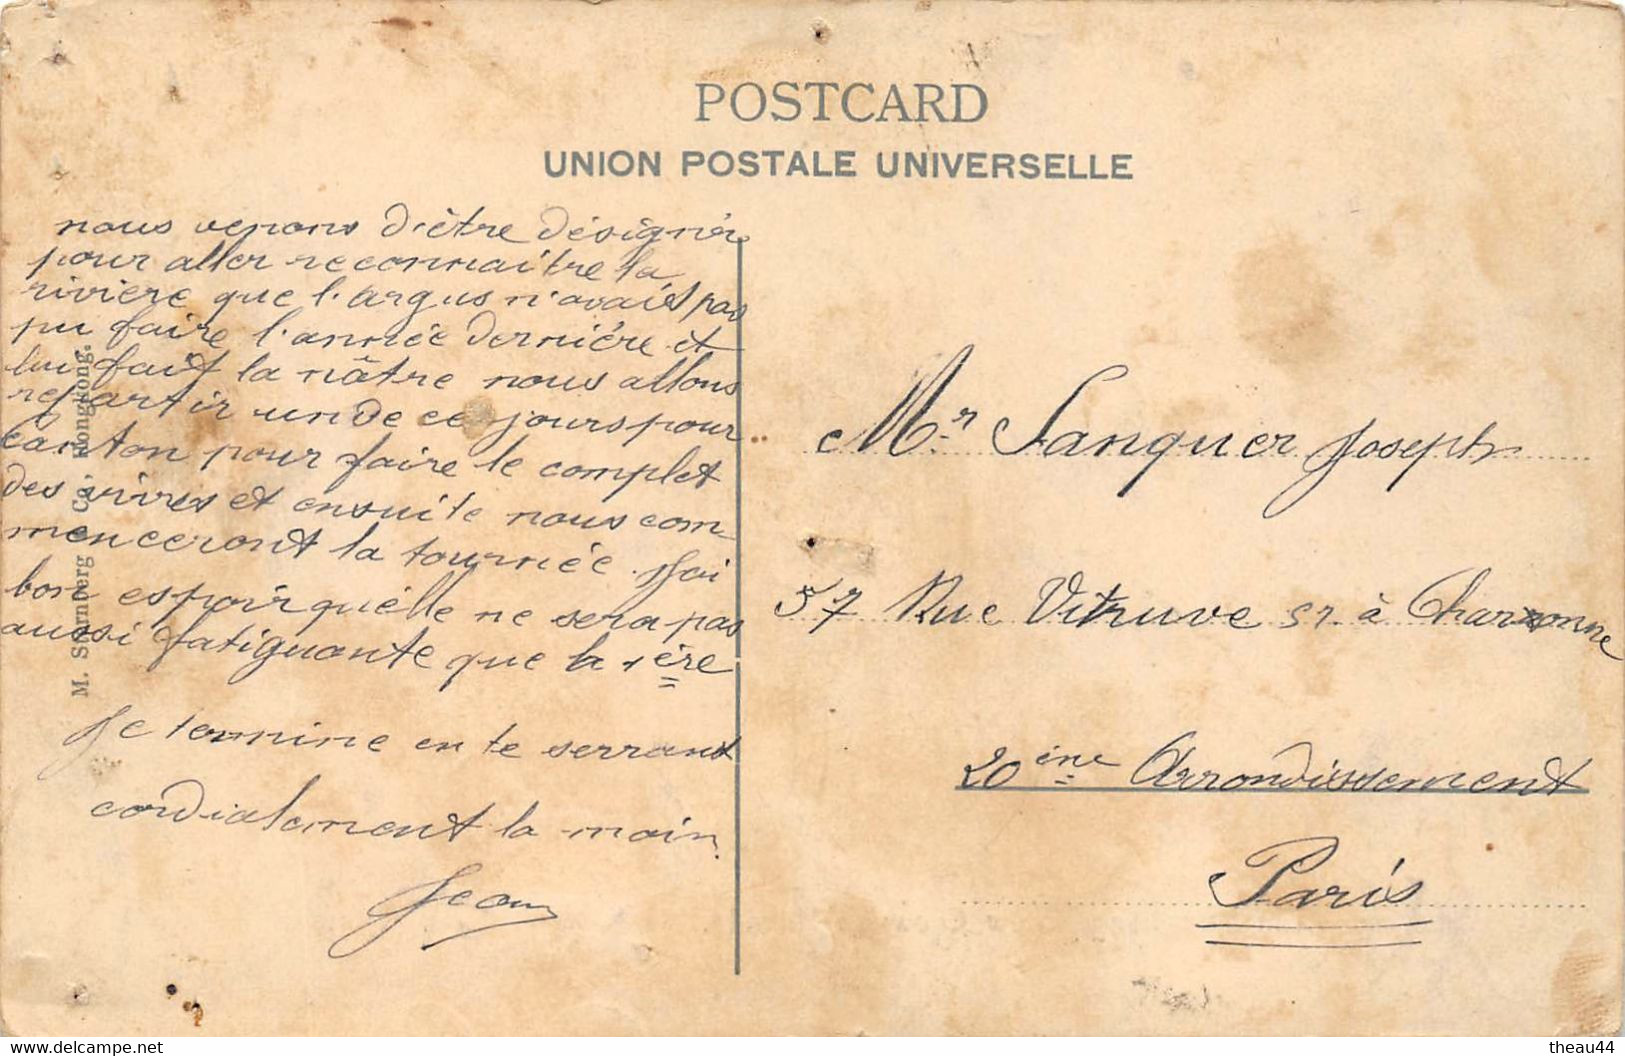 POSTCARD
UNION POSTALE UNIVERSELLE
nous venons d'être désigner
pour aller reconnaitre la
rivière que l'argus n'avait pas
pu faire l'année dernière et
lui fait la nâtre nous allons
repartir un de ce jours pour
Canton pour faire le complet
des vivres et ensuite nous com
menceront la tournée. J'ai
bon espoir quélle ne sera pas
aussi fatiguante que la 1ère
Je termine en te serrant
cordialement la main.
Jean
M. Sternberg Co., Hongkong.
Mr Sanquer Joseph
57 Rue Vitruve St. à Charonne
20ème Arrondissement
Paris
theau44